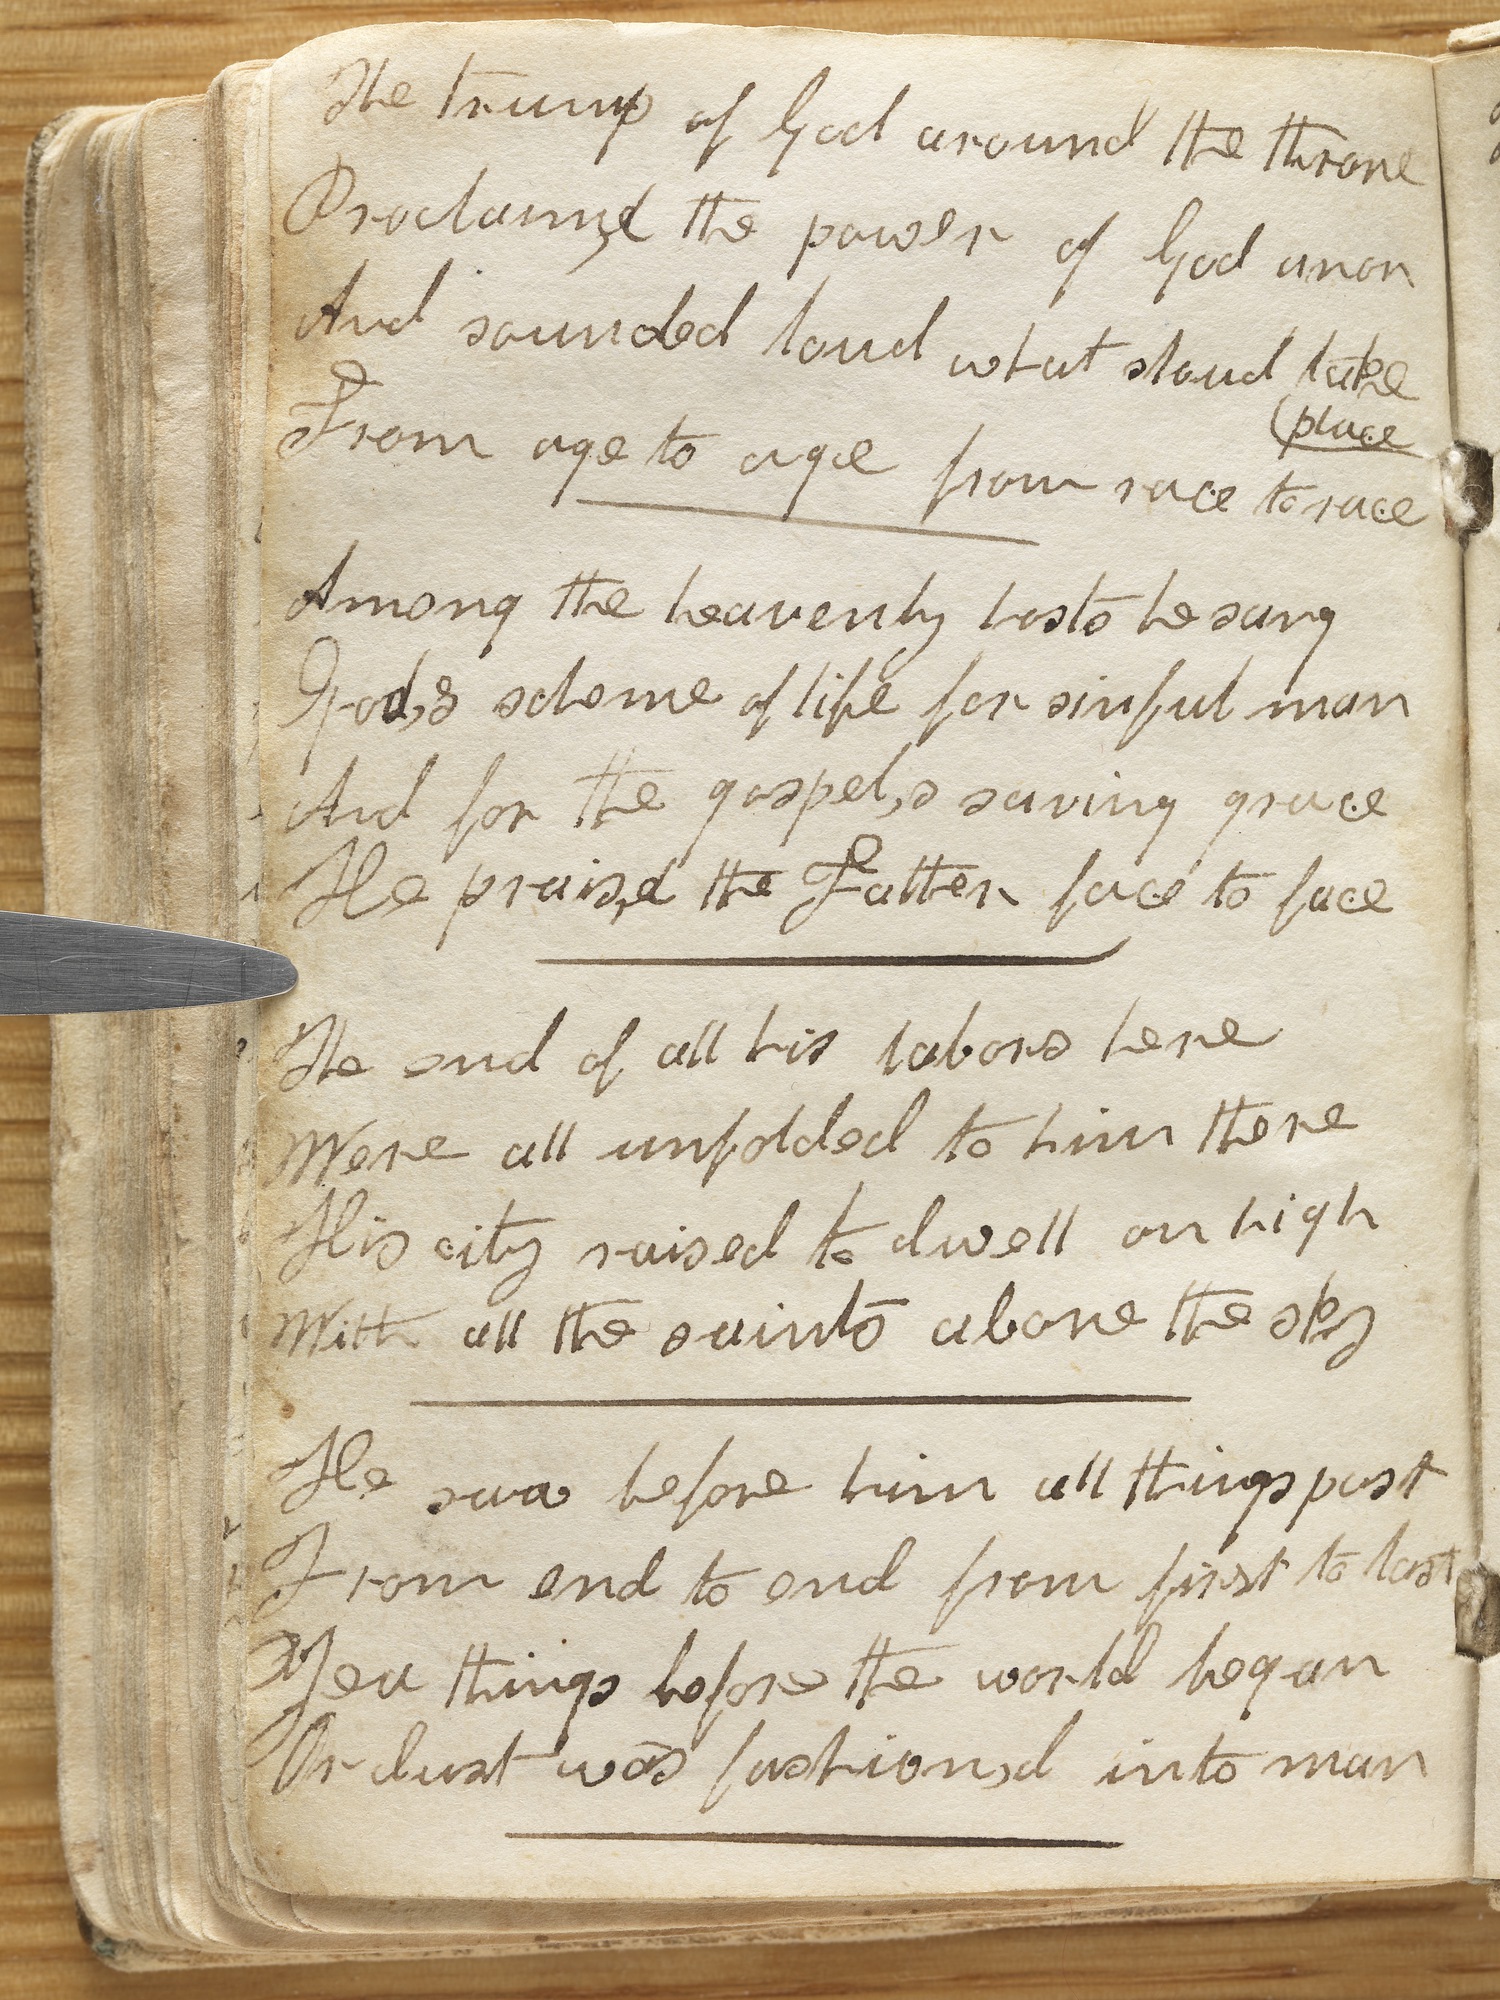 The trump of God around the throne
Proclaim,d the power of God anon
And sounded loud what shoud take
(place
From age to age from race to race
Among the heavenly hosts he sang
God,s scheme of life for sinful man
And for the gospel,s saving grace
He prais,d the Father face to face
The end of all his labors here
Were all unfolded to him there
His city raised to dwell on high
With all the saints above the sky
He saw before him all things past
From end to end from first to last
Yea things before the world began
Or dust was fashion,d into man